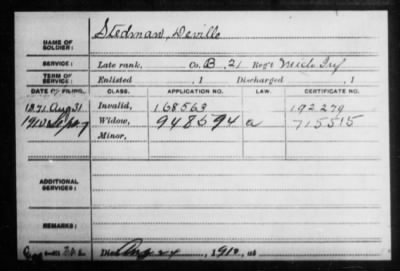 NAME OF SOLDIER: Stedman, Deville
SERVICE: Late rank, Co. B, 21 Reg't Mich Inf
TERM OF SERVICE: Enlisted , 1 Discharged , 1
DATE OF FILING. CLASS. APPLICATION NO. LAW. CERTIFICATE NO.
1871 Aug 31 Invalid, 168563 192279
1910 Widow, 948594 a 715515
Minor,
ADDITIONAL SERVICES:
REMARKS:
Died Aug 24, 1910, at